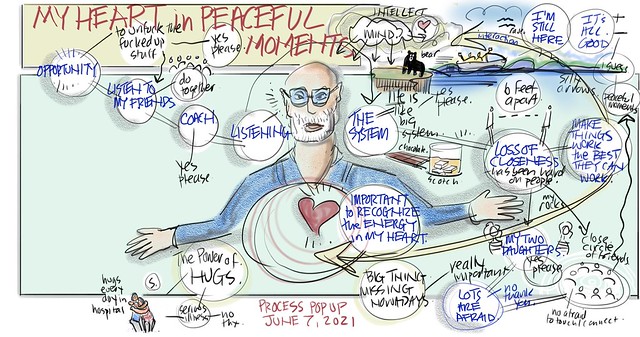 MY HEART in PEACEFUL
MOMENTS
to unfuck the
fucked up
stuff
yes
please
do
together
OPPORTUNITY
LISTEN TO
MY FRIENDS
COACH
yes
please
LISTENING
INTELLECT
MIND
bear
interaction
I'M
STILL
HERE
IT'S
ALL
GOOD
THE
SYSTEM
life is
like
big
system
yes
please.
chocolate
scotch
6 feet
apart
silly
arrows
peaceful
moments
LOSS OF
CLOSENESS
has been hard
on people.
MAKE
THINGS
WORK
the BEST
THEY CAN
WORK.
IMPORTANT
to RECOGNIZE
the ENERGY
in MY HEART.
my
rocks
MY TWO
DAUGHTERS.
yes
please
close
circle
of friends
no afraid
to touch/connect.
BIG THING
MISSING
NOWADAYS
really
important
LOTS
ARE
AFRAID
no
thank
you
The Power of
HUGS.
S.
hugs
every
day in
hospital
serious
illness
no
thx.
PROCESS POP UP
JUNE 7, 2021